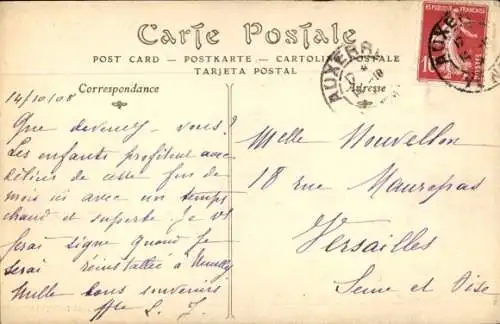 Carte Postale
POST CARD — POSTKARTE — CARTOLINA POSTALE
TARJETA POSTAL
Correspondance
Adresse
REPUBLIQUE FRANÇAISE
10
AUXERRE
14/10/08
Que devenez-vous?
Les enfants profitent avec
délices de cette fin de
mois ici avec un temps
chaud et superbe. Je vs
ferai signe quand je
serai réinstallée à Neuilly
Mille bons souvenirs
Mlle Nouvellon
18 rue Maurepas
Versailles
Seine et Oise